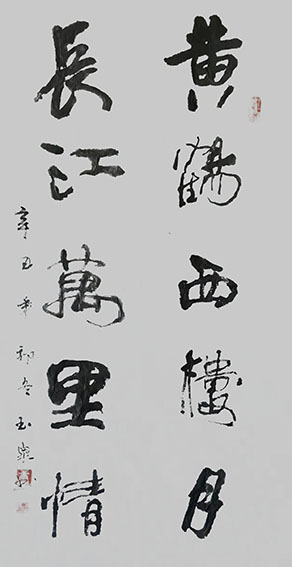 黄鶴西樓月
長江萬里情
辛丑年初冬玉泉